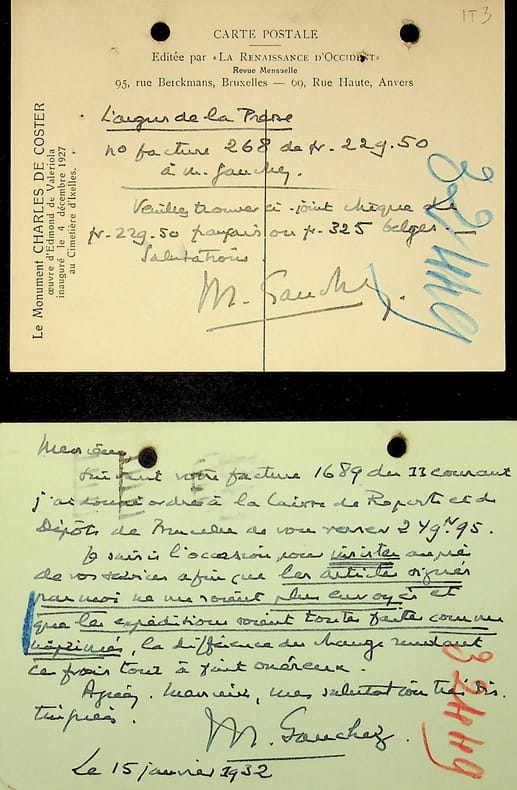 1T3
CARTE POSTALE
Editée par «LA RENAISSANCE D'OCCIDENT»
Revue Mensuelle
95, rue Berckmans, Bruxelles — 69, Rue Haute, Anvers
Le Monument CHARLES DE COSTER
œuvre d'Edmond de Valeriola
inauguré le 4 décembre 1927
au Cimetière d'Ixelles.
L'argus de la Presse
no facture 268 de fr. 229.50
à M. Gauchez.
Veuillez trouver ci-joint chèque de
fr. 229.50 français ou fr. 325 belges.
Salutations
M. Gauchez.
32449
Messieurs,
Suivant votre facture 1689 du 11 courant
j'ai donné ordre à la Caisse de Reports et de
Dépôts de Bruxelles de vous verser 249 frs 95.
Je saisis l'occasion pour insister auprès
de vos services afin que les articles signés
par moi ne me soient plus envoyés et
que les expéditions soient toutes faites comme
imprimés, la différence du change rendant
ce frais tout à fait onéreux.
Agréez, Messieurs, mes salutations très dis-
tinguées.
M. Gauchez.
Le 15 janvier 1932
32449